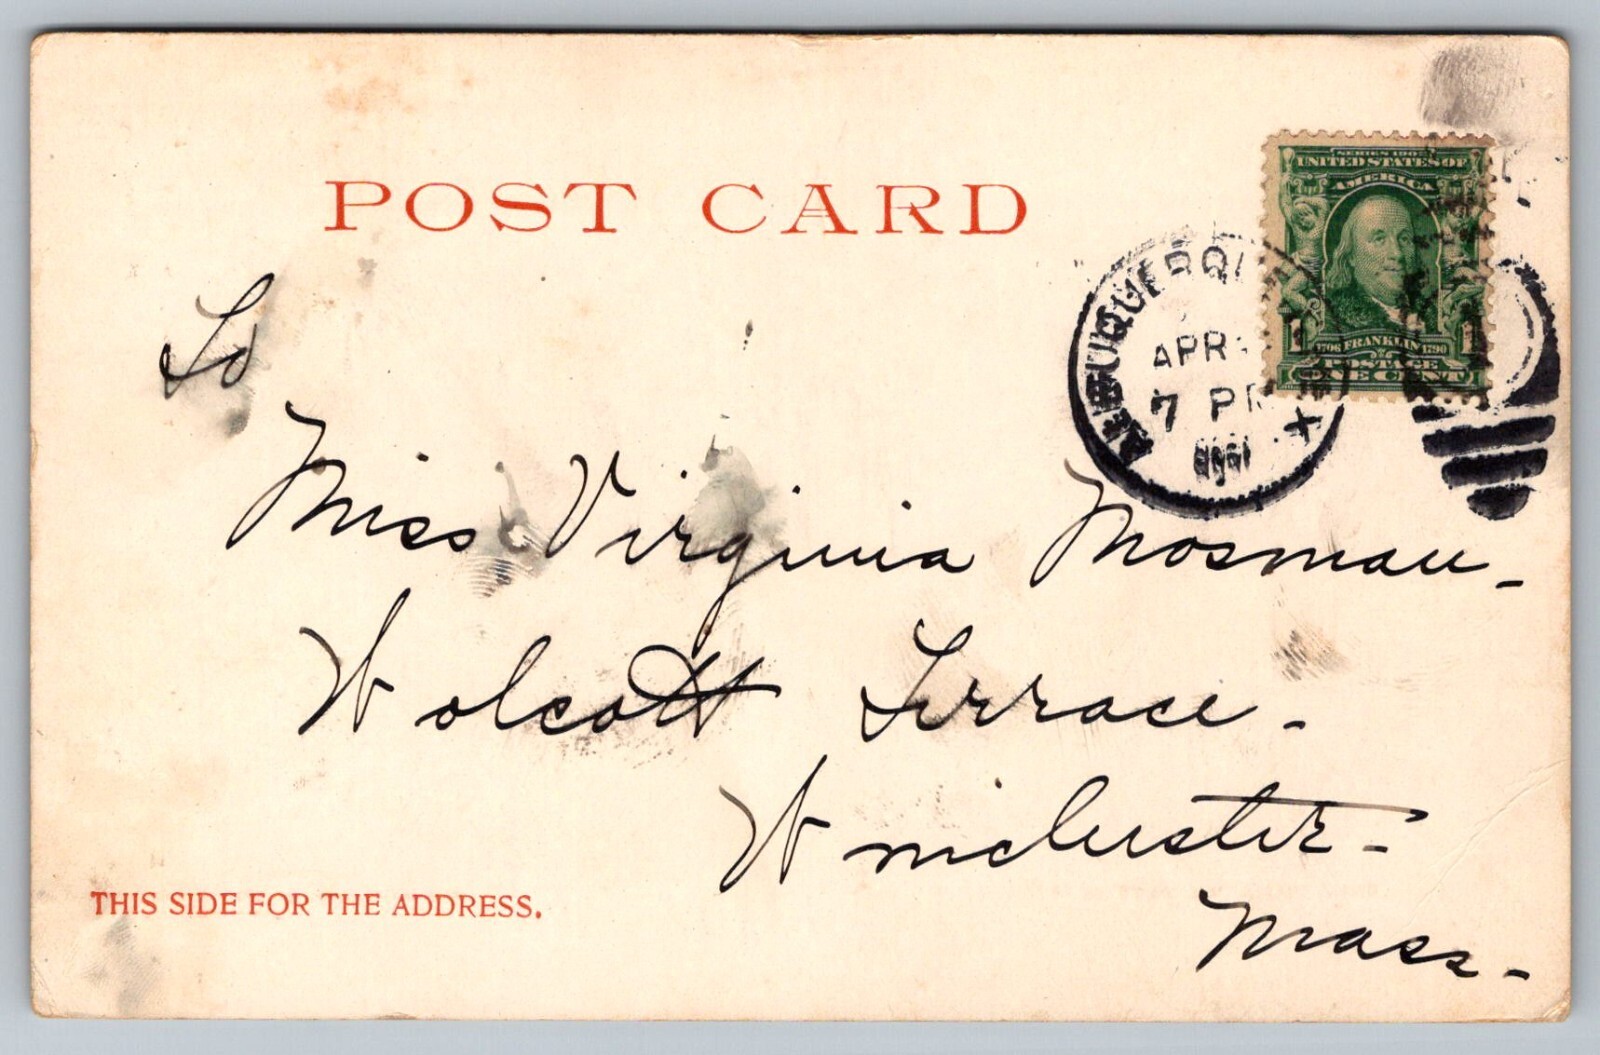 POST CARD
SERIES 1902
UNITED STATES OF
AMERICA
1 1
1706 FRANKLIN 1790
POSTAGE
ONE CENT
ALBUQUERQUE
APR
7 PM
To
Miss Virginia Mosman -
Wolcott Terrace -
Winchester -
Mass -
THIS SIDE FOR THE ADDRESS.